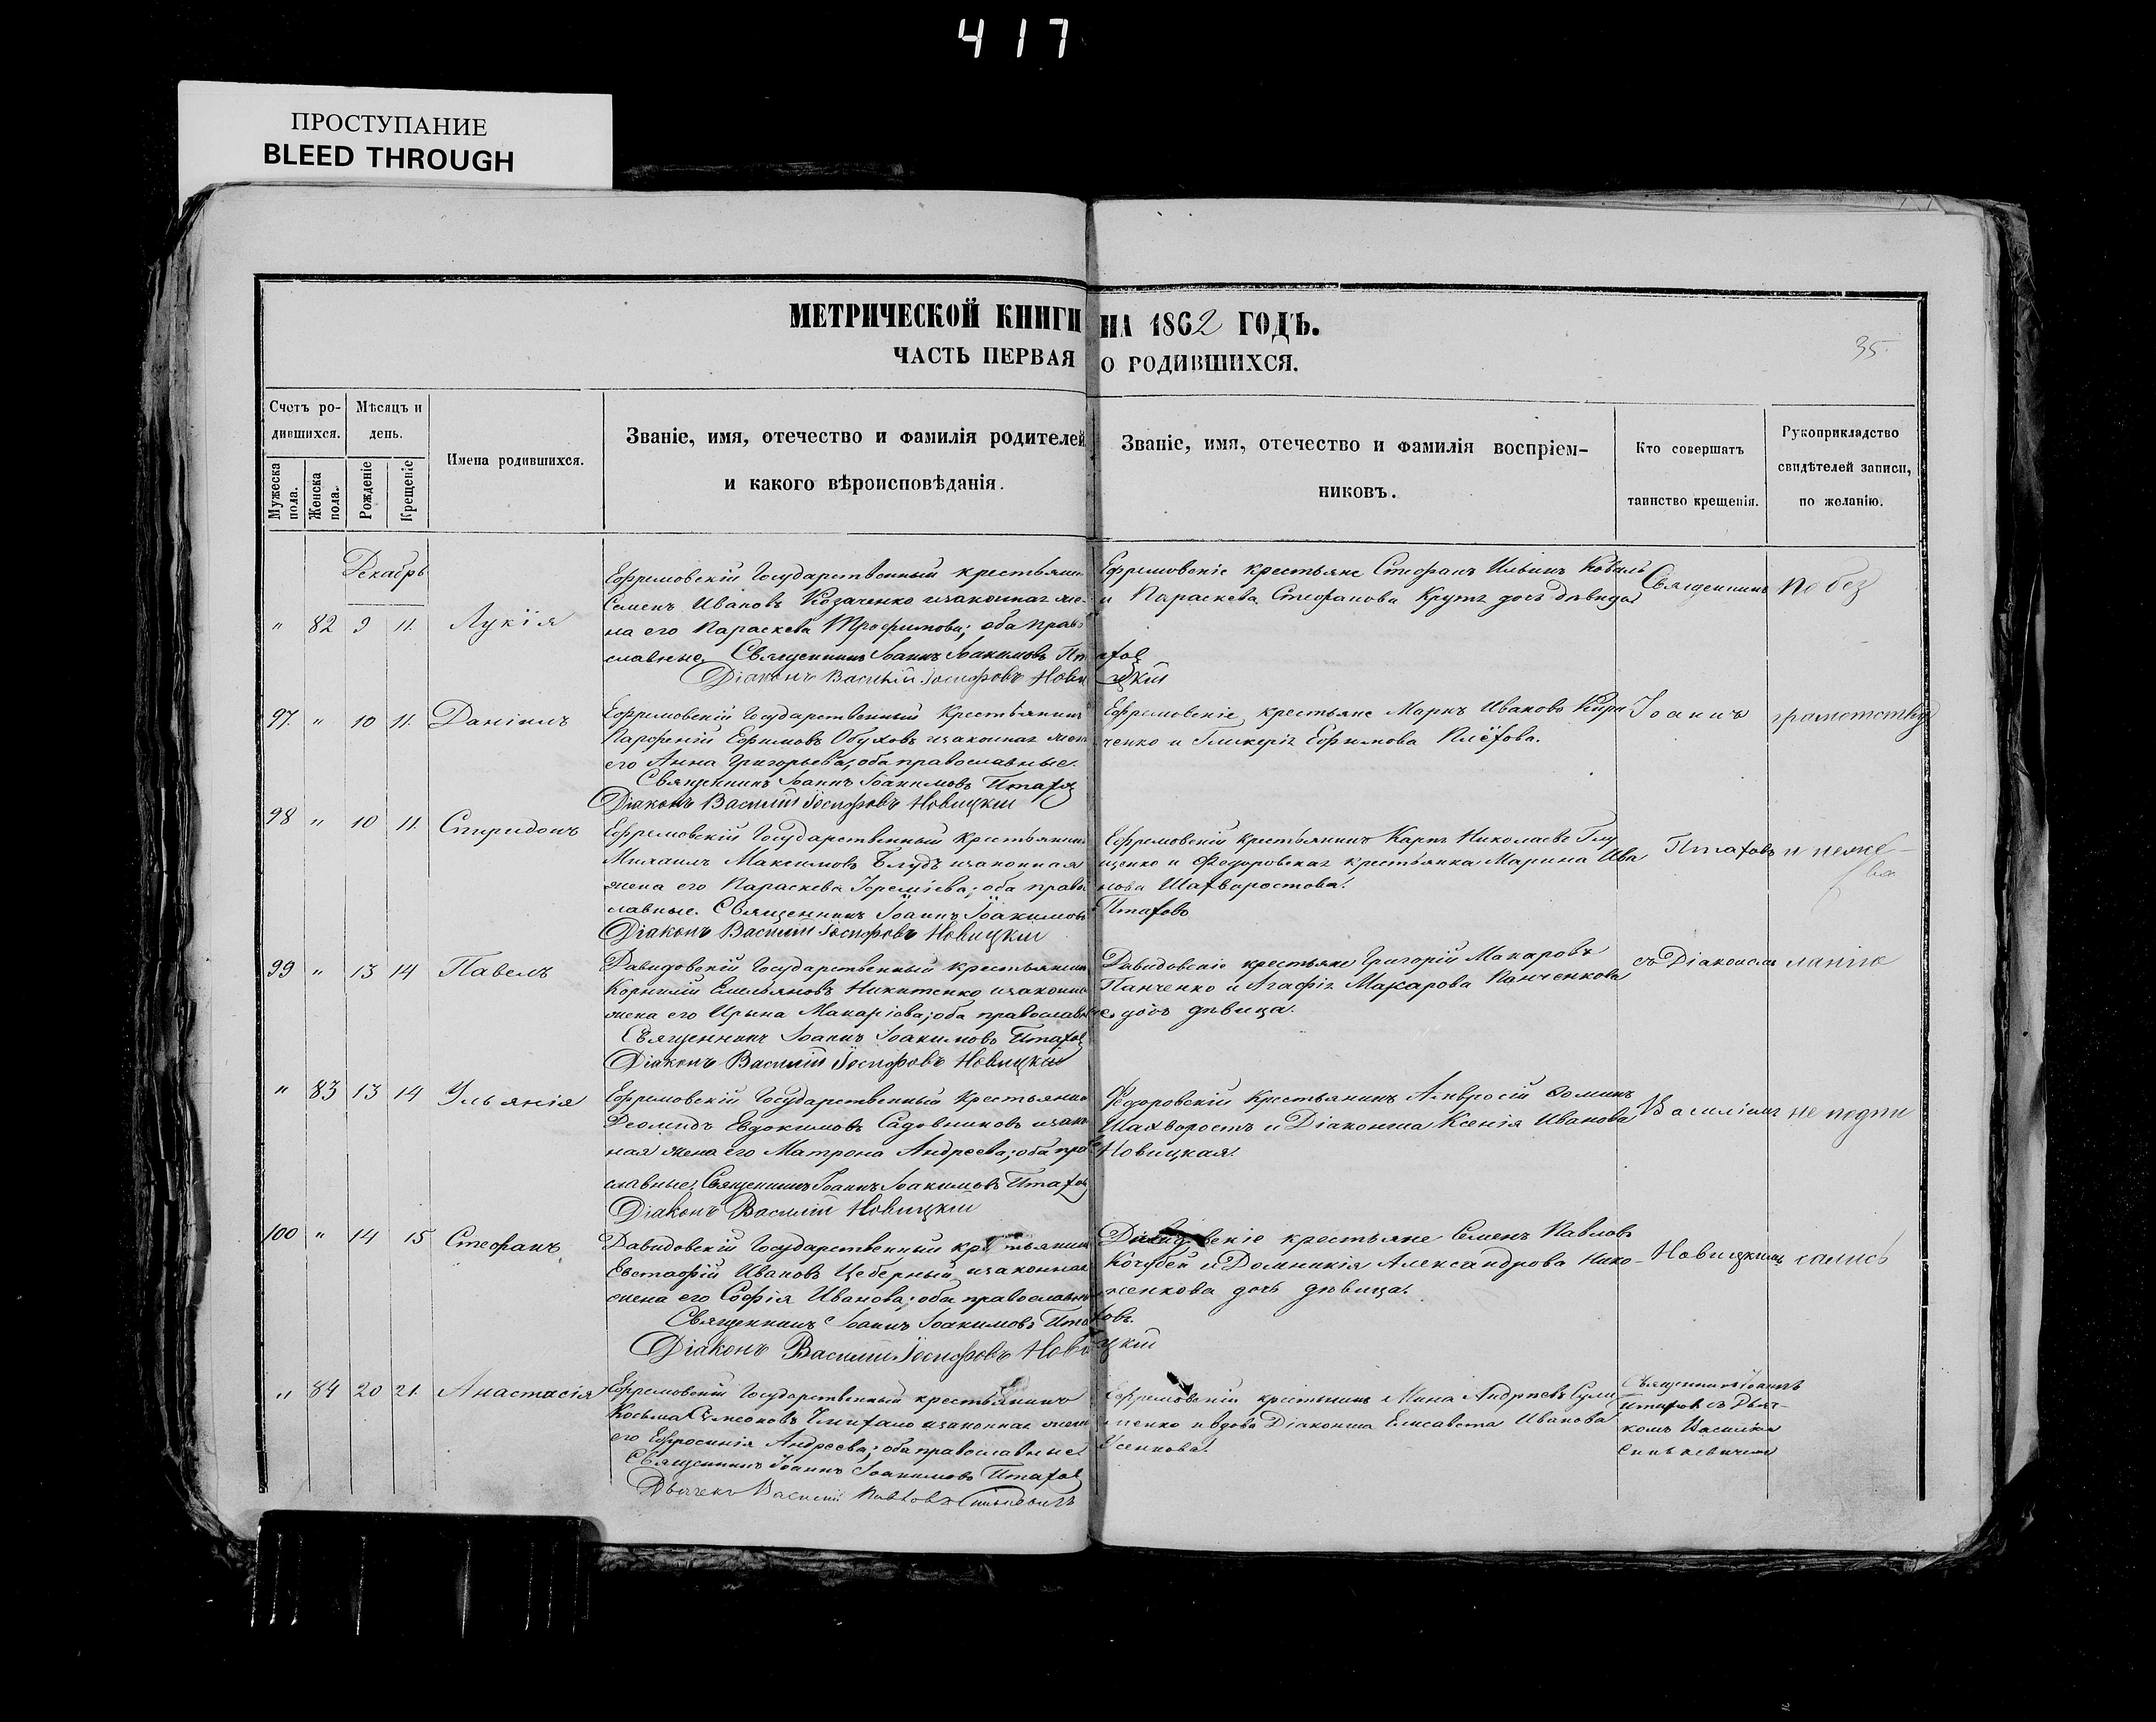 417
ПРОСТУПАНИЕ
BLEED THROUGH
МЕТРИЧЕСКОЙ КНИГИ НА 1862 ГОДЪ.
35.
ЧАСТЬ ПЕРВАЯ О РОДИВШИХСЯ.
Счетъ родившихся.
Мужеска пола.
Женска пола.
Мѣсяцъ и день.
Рожденіе
Крещеніе
Имена родившихся.
Званіе, имя, отечество и фамилія родителей
и какого вѣроисповѣданія.
Званіе, имя, отечество и фамилія воспріем-
никовъ.
Кто совершатъ
таинство крещенія.
Рукоприкладство
свидѣтелей записи,
по желанію.
Декабрь
" 82 9 11. Лукія
Ефремовскій Государственный крестьянин
Семенъ Ивановъ Козаченко изаконная же-
на его Параскева Трофимова; оба право
славные. Священникъ Іоаннъ Іоакимовъ Птаховъ
Діаконъ Василій Іосифовъ Новицкій
Ефремовскіе крестьяне Стефанъ Ильинъ Коваль
и Параскева Стефанова Крутъ дочь дѣвица
Священникъ
По без
97. " 10 11. Даніилъ
Ефремовскій Государственный Крестьянинъ
Парфеній Ефимовъ Обуховъ изаконная жена
его Анна Григорьева, оба православные.
Священникъ Іоаннъ Іоакимовъ Птаховъ
Діаконъ Василій Іосифовъ Новицкій
Ефремовскіе крестьяне Маркъ Ивановъ Кири
ченко и Гликерія Ефимова
Іоаннъ
грамотству
98 " 10 11. Спиридонъ
Ефремовскій Государственный Крестьянинъ
Михаилъ Максимовъ Блудъ изаконная
жена его Параскева Іереміева; оба право
славные. Священникъ Іоаннъ Іоакимовъ Птаховъ
Діаконъ Василій Іосифовъ Новицкій
Ефремовскій Крестьянинъ Карпъ Николаевъ Глу
щенко и Федоровская крестьянка Марина Ива
нова Шахворостова.
Птаховъ
и неже-
99 " 13 14 Павелъ
Давидовскій Государственный крестьянинъ
Корнилій Емельяновъ Никитенко изаконная
жена его Ирина Макаріова; оба православные
Священникъ Іоаннъ Іоакимовъ Птаховъ
Діаконъ Василій Іосифовъ Новицкій
Давидовскіе крестьяне Григорій Макаровъ
Панченко и Агафія Макарова Панченкова
дочь дѣвица.
съ Діакономъ
ланію
" 83 13 14 Ульянія
Ефремовскій Государственный Крестьянинъ
Деомидъ Евдокимовъ Садовниковъ изакон
ная жена его Матрона Андреева; оба право
славные. Священникъ Іоаннъ Іоакимовъ Птаховъ
Діаконъ Василій Новицкій
Федоровскій Крестьянинъ Амвросій Фоминъ
Шахворостъ и Діаконша Ксенія Иванова
Новицкая.
Василіемъ
не подпи
100 " 14 15 Стефанъ
Давидовскій Государственный крестьянинъ
Евстафій Ивановъ Цеберный изаконная
жена его Софія Иванова; оба православные
Священникъ Іоаннъ Іоакимовъ Птаховъ.
Діаконъ Василій Іосифовъ Новицкій
Давидовскіе крестьяне Семенъ Павловъ
Кочубей и Домникія Александрова
дочь дѣвица.
Новицкимъ
сались
" 84 20 21. Анастасія
Ефремовскій Государственный крестьянинъ
Косьма Симеоновъ изаконная жена
его Ефросинія Андреева; оба православные.
Священникъ Іоаннъ Іоакимовъ Птаховъ
Дьячекъ Василій Павловъ Синькевичъ
Ефремовскій крестьянинъ Мина Андреевъ
и вдова Діаконша Елисавета Иванова
Усенкова.
Священникъ Іоаннъ
Птаховъ съ Дьяч-
комъ Василіем
Синькевичем